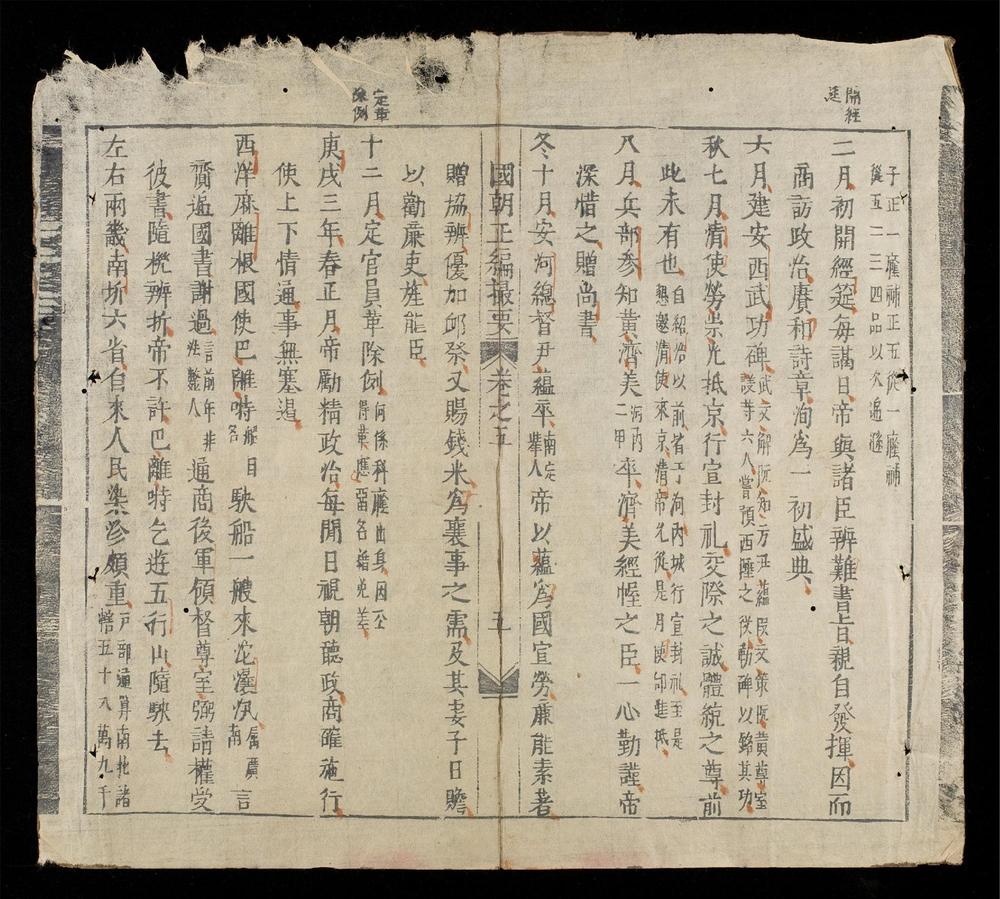 開經
筵
子正一廕補正五從一廕補
從五二三四品以次遞遜
二月初開經筵每講日帝與諸臣辨難書旨親自發揮因而
商訪政治賡和詩章洵爲一初盛典
六月建安西武功碑武文解阮知方尹蘊段文策阮黃尊室
議等六人嘗預西陲之役勒碑以銘其功
秋七月清使勞崇光抵京行宣封礼交際之誠體統之尊前
此未有也自紹治以前皆于河内城行宣封礼至是
懇邀清使來京清帝允從是月使部進抵
八月兵部参知黃濟美河内
二甲卒濟美經幄之臣一心勤謹帝
深惜之贈尚書
冬十月安河總督尹蘊卒南定
舉人帝以蘊爲國宣勞廉能素著
國朝正編撮要 卷之五 五
贈協辨優加邱祭又賜錢米爲襄事之需及其妻子日贍
以勸廉吏旌能臣
定革
除例
十二月定官員革除例何係科廕出身因公
得革應畱各褫免差
庚戌三年春正月帝勵精政治每間日視朝聽政商確施行
使上下情通事無塞遏
西洋麻離根國使巴離特船目
名駛船一艘來沱㶞汛属廣
南言
齎遞國書謝過言前年非
性斃人遞商後軍領督尊室弼請權受
彼書隨機辨折帝不許巴離特乞遊五行山隨駛去
左右兩畿南圻六省自來人民染沴頗重户部通算南北諸
轄五十八萬九千